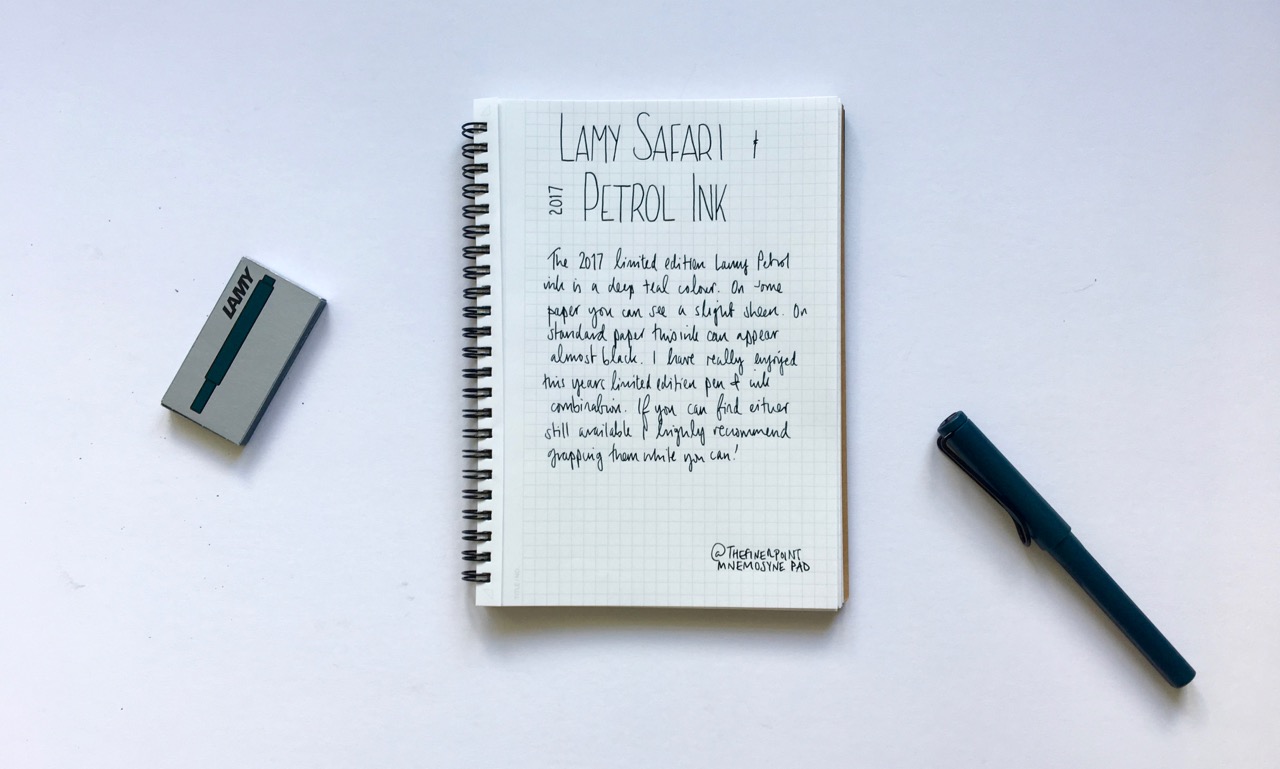 LAMY
LAMY SAFARI &
2017 PETROL INK
The 2017 limited edition Lamy Petrol
ink is a deep teal colour. On some
paper you can see a slight sheen. On
standard paper this ink can appear
almost black. I have really enjoyed
this years limited edition pen & ink
combination. If you can find either
still available I highly recommend
grapping them while you can!
@THEFINERPOINT
MNEMOSYNE PAD